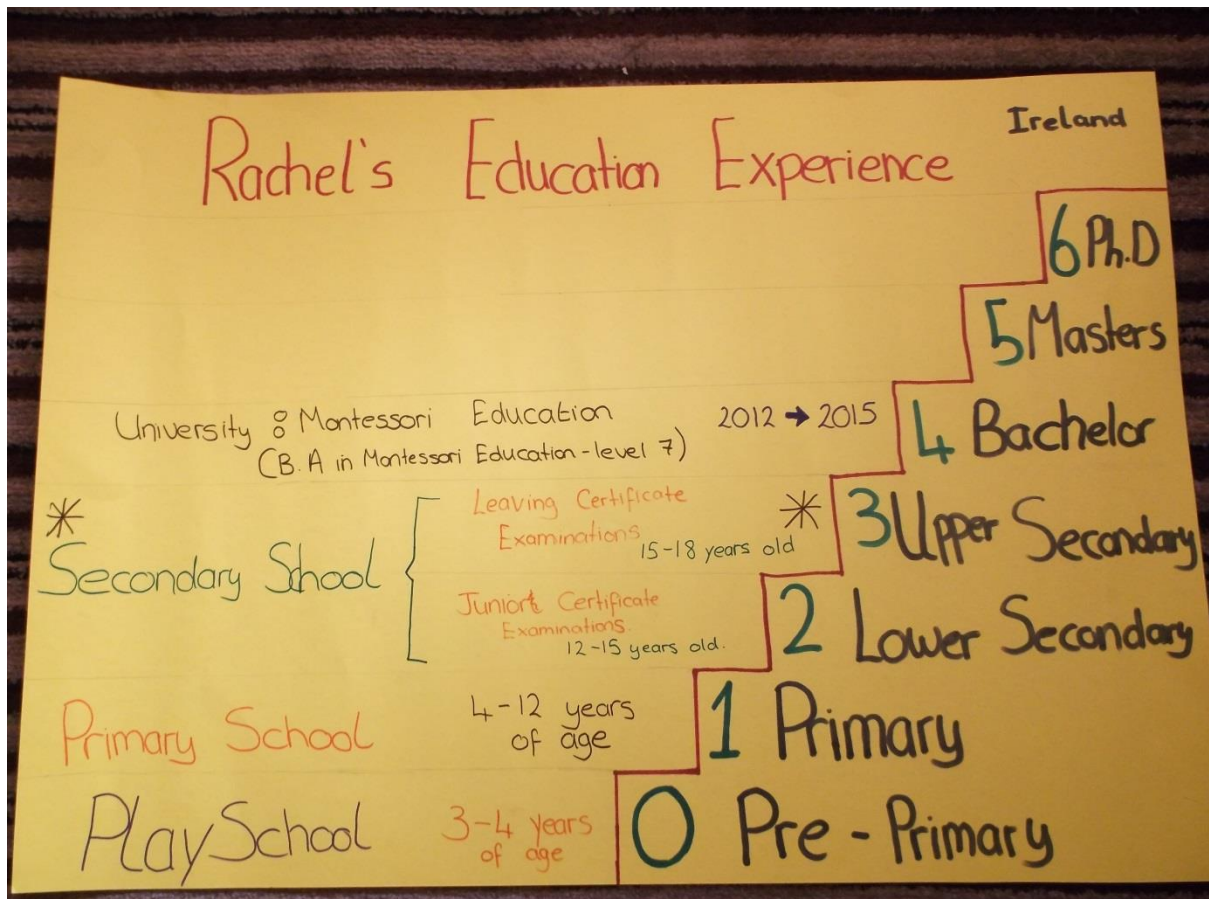 Ireland
Rachel's Education Experience
6 Ph.D
5 Masters
University : Montessori Education 2012 → 2015
(B.A in Montessori Education - level 7)
4 Bachelor
* Secondary School
Leaving Certificate *
Examinations
15-18 years old
3 Upper Secondary
Junior Certificate
Examinations.
12-15 years old.
2 Lower Secondary
Primary School
4-12 years
of age
1 Primary
Play School
3-4 years
of age
0 Pre-Primary